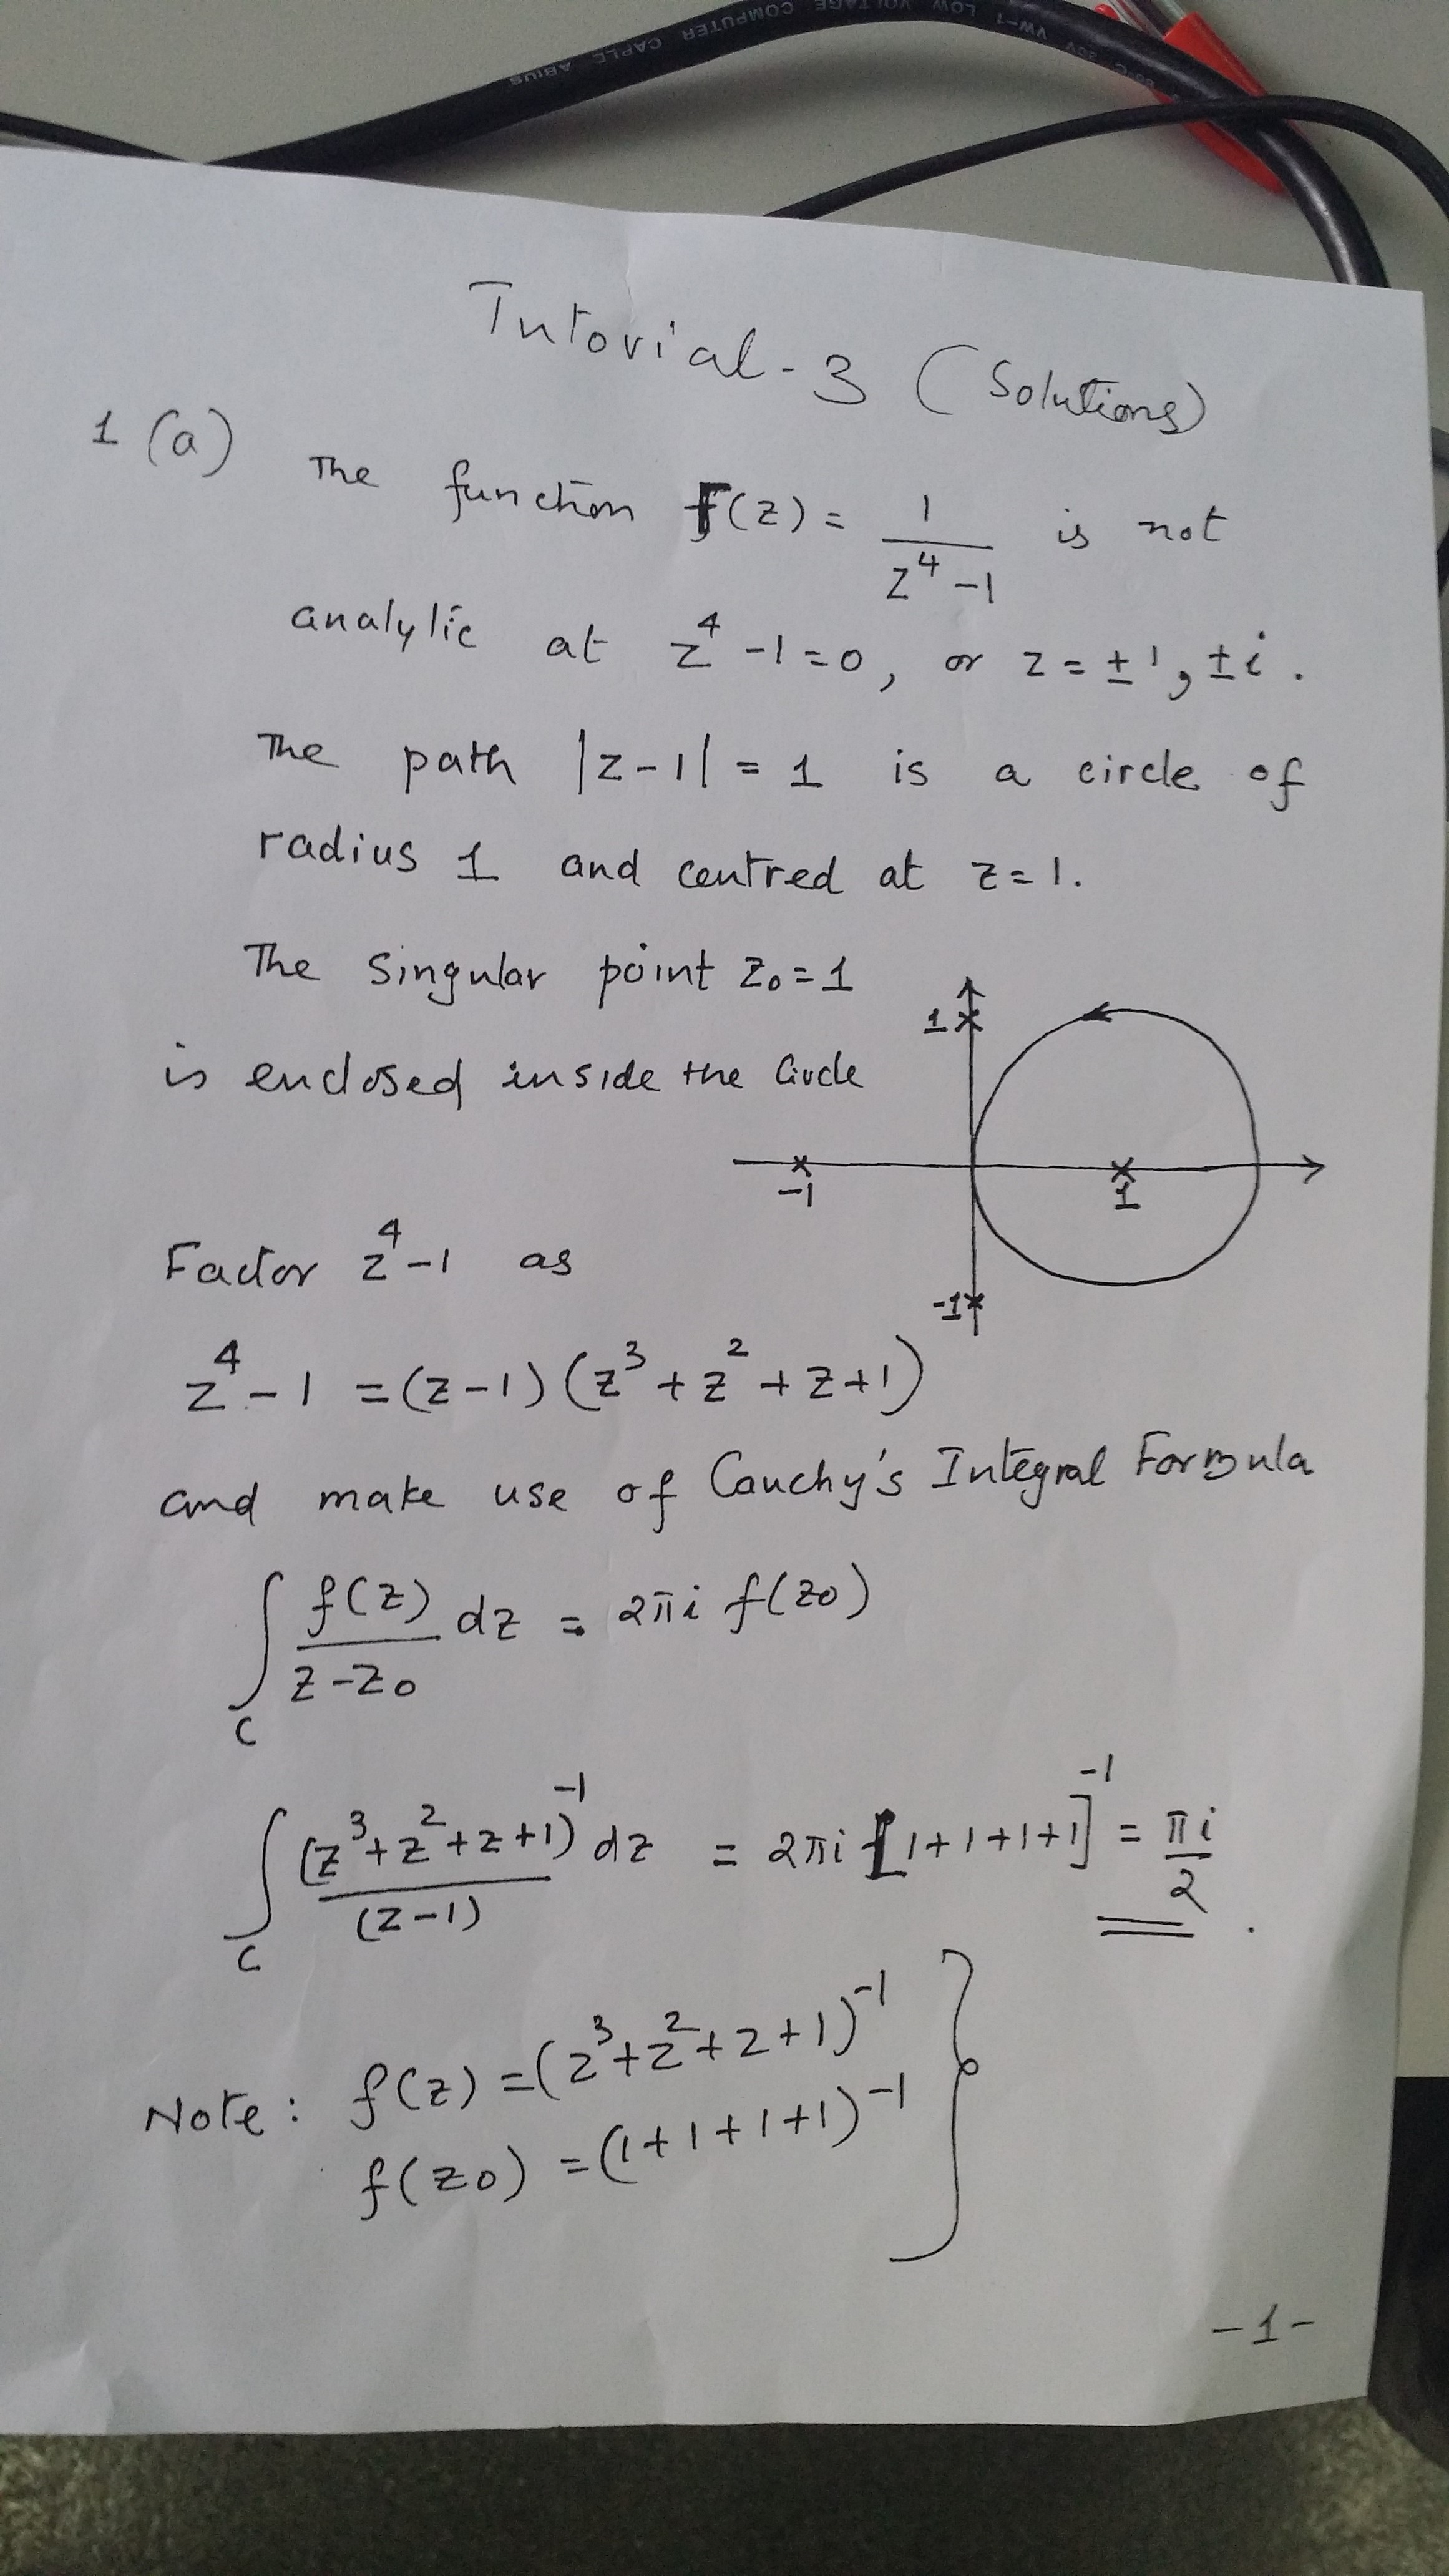 ABIUS CAPLE COMPUTER LOW VOLTAGE VW-1 30V 80°C
Tutorial-3 (Solutions)
1 (a) The function F(z) = 1/(z⁴-1) is not
analytic at z⁴-1=0, or z = ±1, ±i.
The path |z-1| = 1 is a circle of
radius 1 and centred at z=1.
The singular point z₀=1
is enclosed inside the Circle
1
-1
1
-1
Factor z⁴-1 as
z⁴-1 = (z-1)(z³+z²+z+1)
and make use of Cauchy's Integral Formula
∫_C f(z)/(z-z₀) dz = 2πi f(z₀)
∫_C (z³+z²+z+1)⁻¹/(z-1) dz = 2πi [1+1+1+1]⁻¹ = πi/2.
Note: f(z) = (z³+z²+z+1)⁻¹
f(z₀) = (1+1+1+1)⁻¹
-1-